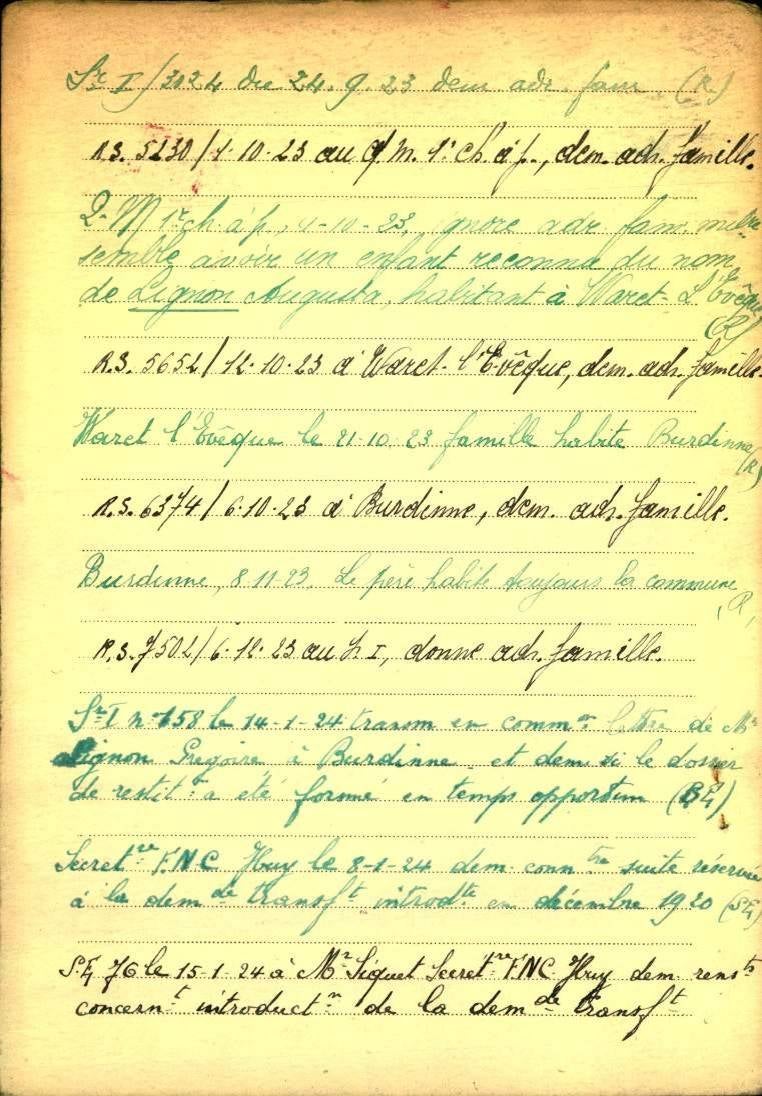 Sce I/3024 du 24.9.23 dem adr. fam (R.)
R.S. 5230/1.10.23 au Q.M. 1r Ch. à p., dem. adr. famille.
Q-M 1r ch. à p., 4-10-23, ignore adr fam. milre
semble avoir un enfant reconnu du nom
de Lignon Augusta, habitant à Waret-L'Evêque
(R)
R.S. 5652/12.10.23 à Waret-l'Evêque, dem. adr. famille.
Waret l'Evêque le 21-10-23 famille habite Burdinne
(R)
R.S. 6374/6.10.23 à Burdinne, dem. adr. famille.
Burdinne, 8.11.23. Le père habite toujours la commune
(R)
R.S. 7502/6.12.23 au I, donne adr. famille.
Sce I n° 158 le 14-1-24 transm en common lettre de Mr
Lignon Grégoire à Burdinne et dem. si le dossier
de restiton a été formé en temps opportun (BE)
Secretre F.N.C Huy le 8-1-24 dem. conntre suite réservée
à la demde transft introdte en décembre 1920 (S.E)
S.E 76 le 15-1-24 à Mr Siquet Secretre F.N.C. Huy dem. rensts
concernt introductn de la demde transft